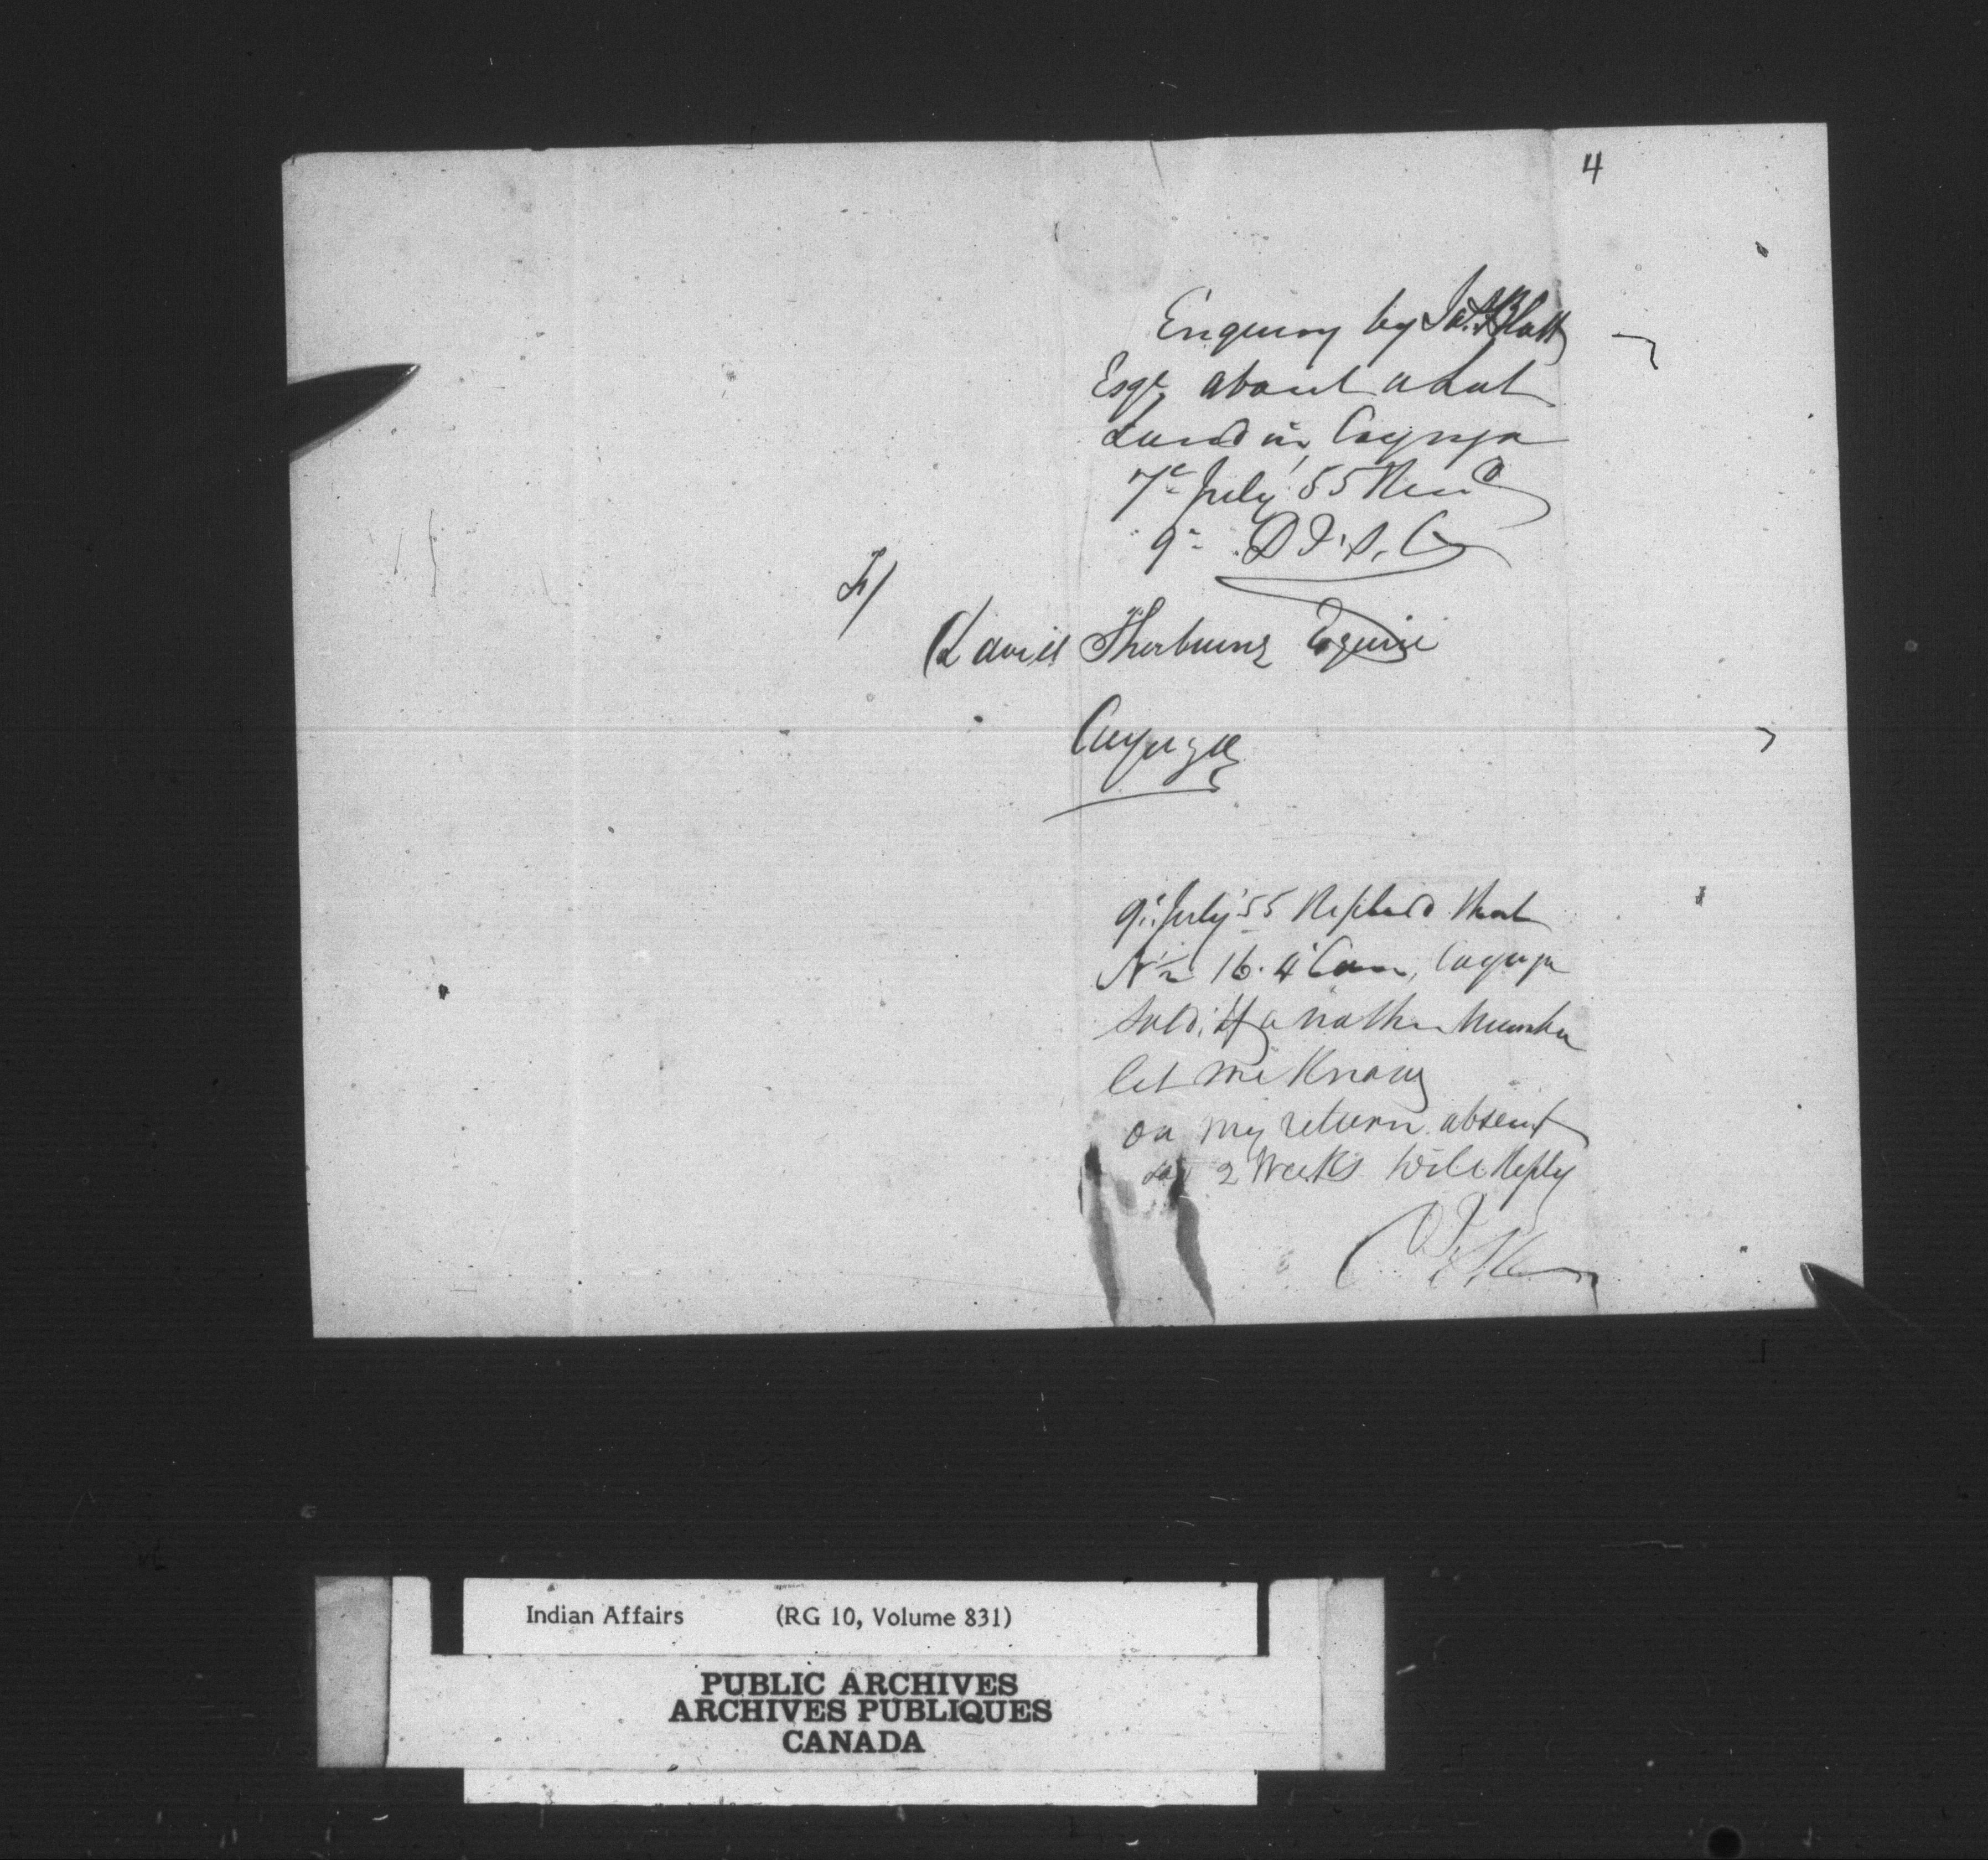 4
Enquiry by Jas. Platt
Esqr, about a Lot
Land in Cayuga
7th July '55 Recd
9th D.T.S.C.
David Thorburn Esquire
Cayuga
9th July '55 Replied that
N 1/2 16. 4 Con, Cayuga
sold, If another Number
let me Know
on my return absent
say 2 Weeks will Reply
Indian Affairs (RG 10, Volume 831)
PUBLIC ARCHIVES
ARCHIVES PUBLIQUES
CANADA